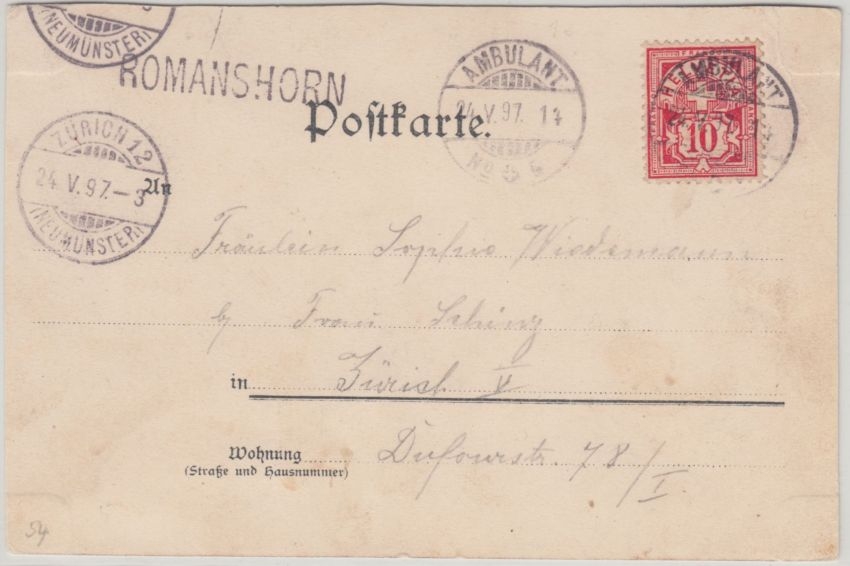 3
(NEUMÜNSTER)
ROMANSHORN
AMBULANT
24.V.97. 1
No
Postkarte.
HELVETIA
10
ZÜRICH 12
24.V.97.–3
(NEUMÜNSTER)
An
Fräulein Sophie Wiedemann
by Frau Schinz
in Zürich V
Wohnung
(Straße und Hausnummer)
Dufourstr. 78/I
54